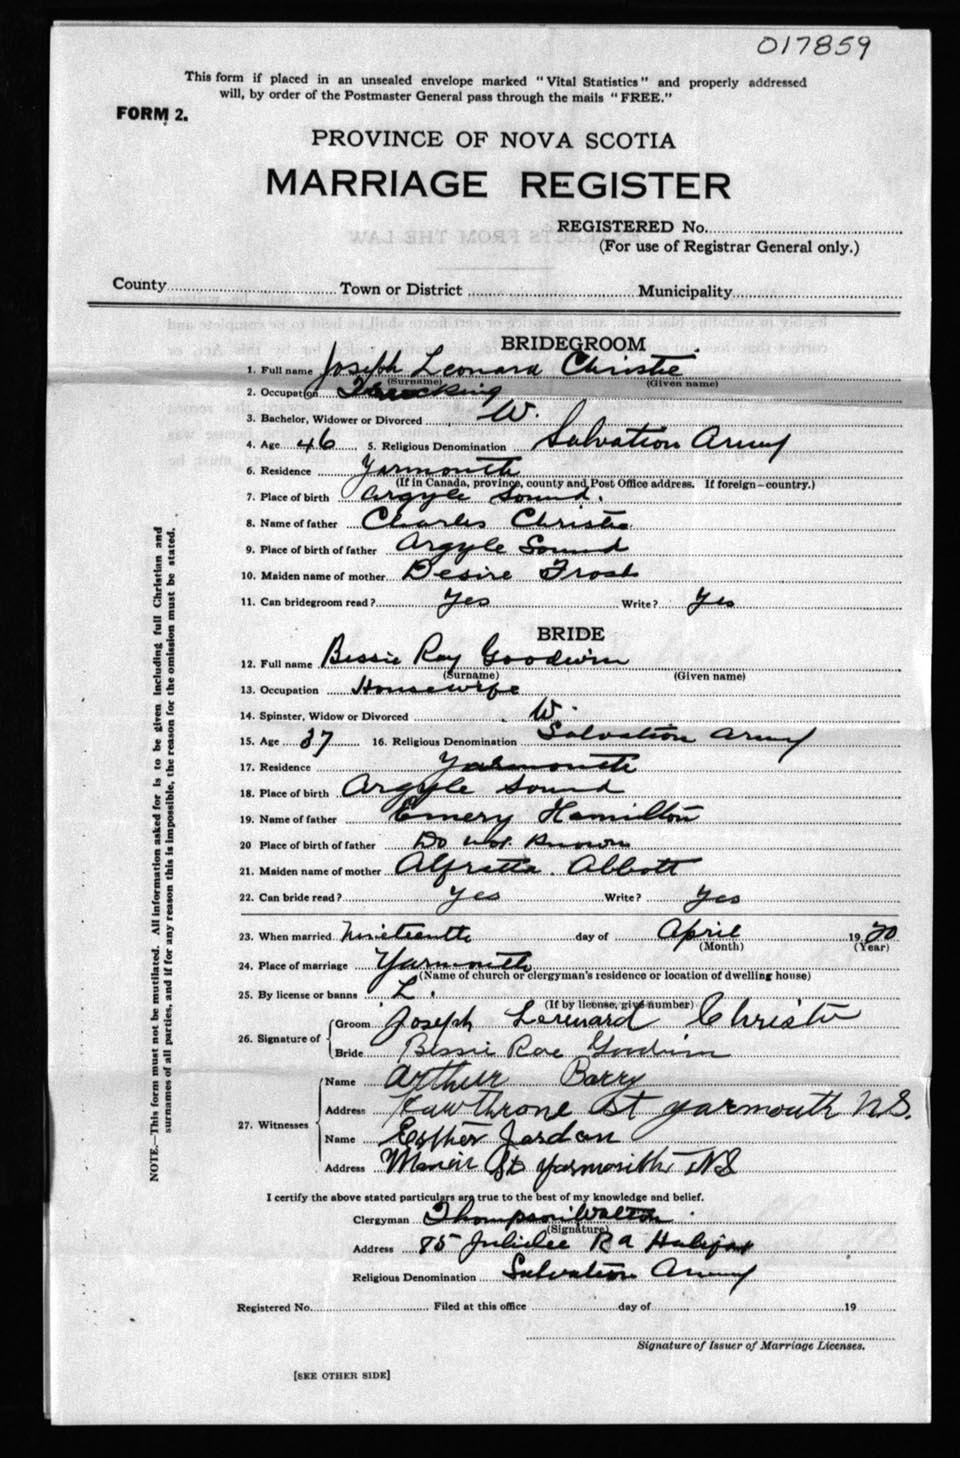 017859
This form if placed in an unsealed envelope marked "Vital Statistics" and properly addressed
will, by order of the Postmaster General pass through the mails "FREE."
FORM 2.
PROVINCE OF NOVA SCOTIA
MARRIAGE REGISTER
REGISTERED No.
(For use of Registrar General only.)
County Town or District Municipality
BRIDEGROOM
1. Full name Joseph Leonard Christie
(Surname) (Given name)
2. Occupation Trucking
3. Bachelor, Widower or Divorced W.
4. Age 46 5. Religious Denomination Salvation Army
6. Residence Yarmouth
(If in Canada, province, county and Post Office address. If foreign—country.)
7. Place of birth Argyle Sound.
8. Name of father Charles Christie
9. Place of birth of father Argyle Sound
10. Maiden name of mother Desire Frost
11. Can bridegroom read? Yes Write? Yes
BRIDE
12. Full name Bessie Ray Goodwin
(Surname) (Given name)
13. Occupation Housewife
14. Spinster, Widow or Divorced W.
15. Age 37 16. Religious Denomination Salvation Army
17. Residence Yarmouth
18. Place of birth Argyle Sound
19. Name of father Emery Hamilton
20 Place of birth of father Do not Known
21. Maiden name of mother Alfretta Abbott
22. Can bride read? Yes Write? Yes
23. When married Nineteenth day of April 19 20
(Month) (Year)
24. Place of marriage Yarmouth
(Name of church or clergyman's residence or location of dwelling house)
25. By license or banns L.
(If by license, give number)
26. Signature of Groom Joseph Lernard Christie
Bride Bessie Rae Goodwin
27. Witnesses Name Arthur Barry
Address Hawthrone St Yarmouth N.S.
Name Esther Jordan
Address St Yarmouth NS
I certify the above stated particulars are true to the best of my knowledge and belief.
Clergyman Thompson Walton
(Signature)
Address 85 Jubilee Rd Halifax
Religious Denomination Salvation Army
Registered No. Filed at this office day of 19
Signature of Issuer of Marriage Licenses.
[SEE OTHER SIDE]
NOTE.—This form must not be mutilated. All information asked for is to be given including full Christian and
surnames of all parties, and if for any reason this is impossible, the reason for the omission must be stated.